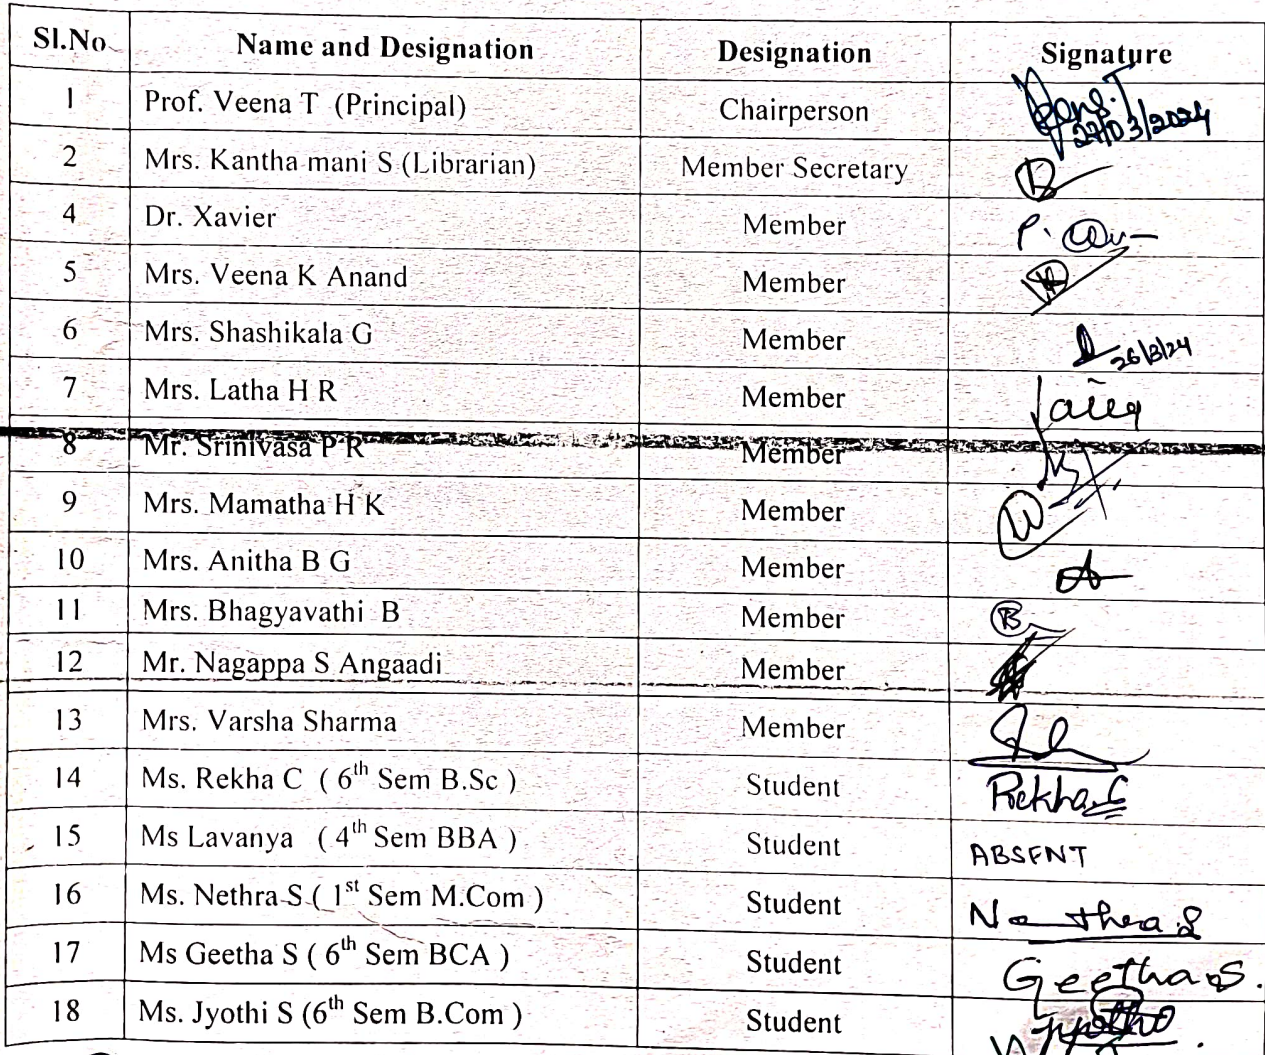 Sl.No Name and Designation Designation Signature
1 Prof. Veena T (Principal) Chairperson 27/03/2024
2 Mrs. Kantha mani S (Librarian) Member Secretary
4 Dr. Xavier Member
5 Mrs. Veena K Anand Member
6 Mrs. Shashikala G Member 26/3/24
7 Mrs. Latha H R Member
8 Mr. Srinivasa P R Member
9 Mrs. Mamatha H K Member
10 Mrs. Anitha B G Member
11 Mrs. Bhagyavathi B Member
12 Mr. Nagappa S Angaadi Member
13 Mrs. Varsha Sharma Member
14 Ms. Rekha C ( 6th Sem B.Sc ) Student Rekha.C
15 Ms Lavanya ( 4th Sem BBA ) Student ABSENT
16 Ms. Nethra S ( 1st Sem M.Com ) Student Nethra.S
17 Ms Geetha S ( 6th Sem BCA ) Student Geetha.S.
18 Ms. Jyothi S (6th Sem B.Com ) Student